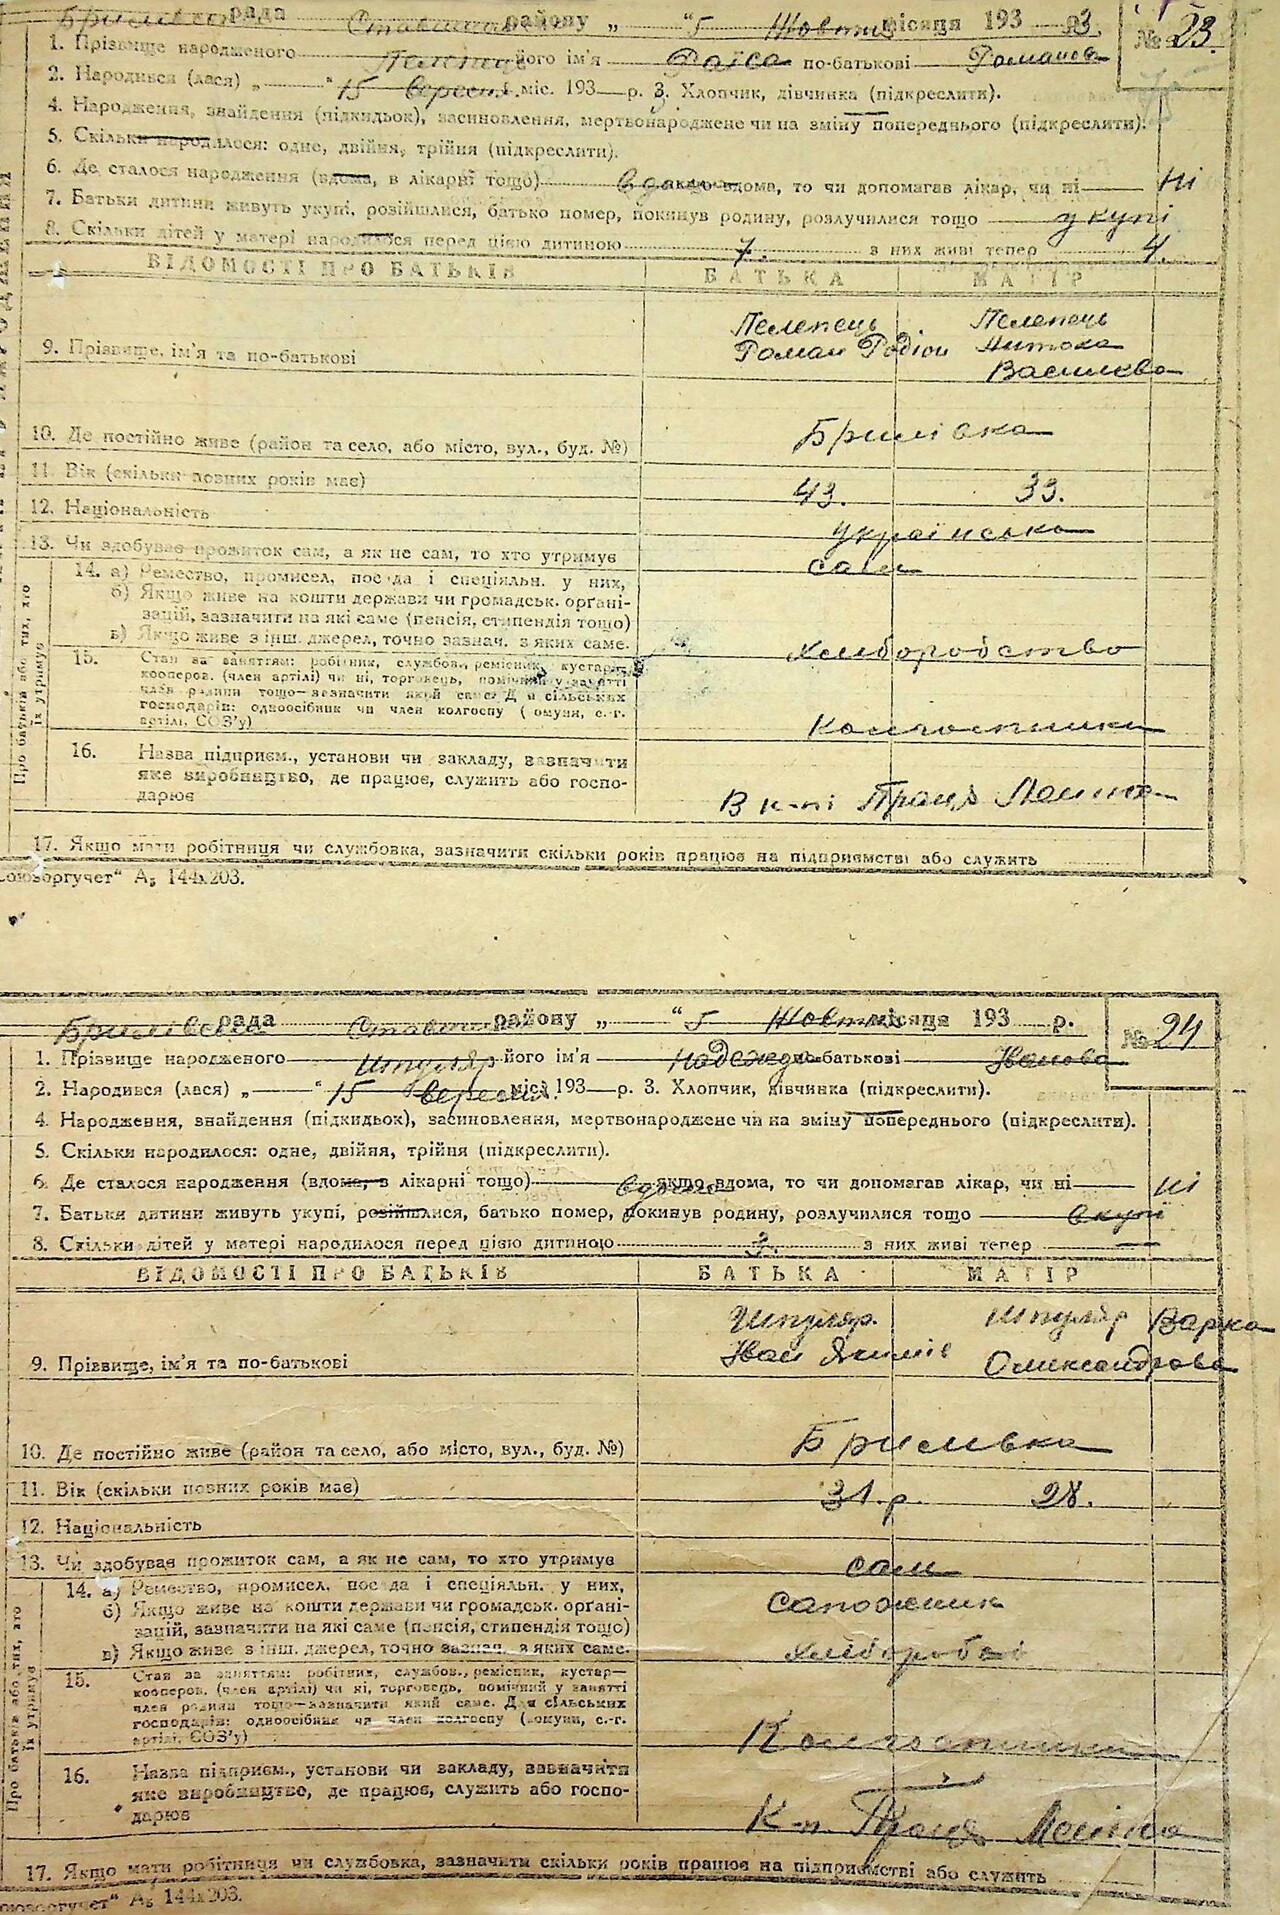 Брилівськ рада Ставищан району „ “ 5 Жовтня місяця 193 р. 3.
№ 23.
1. Прізвище народженого Пелепець його ім'я Раїса по-батькові Романова
2. Народився (лася) „ “ 15 вересня міс. 193 р. 3. Хлопчик, дівчинка (підкреслити).
4. Народження, знайдення (підкидьок), засиновлення, мертвонароджене чи на зміну попереднього (підкреслити).
5. Скільки народилося: одне, двійня, трійня (підкреслити).
6. Де сталося народження (вдома, в лікарні тощо) вдома якщо вдома, то чи допомагав лікар, чи ні ні
7. Батьки дитини живуть укупі, розійшлися, батько помер, покинув родину, розлучилися тощо укупі
8. Скільки дітей у матері народилося перед цією дитиною 7. з них живі тепер 4.
ВІДОМОСТІ ПРО БАТЬКІВ БАТЬКА МАТІР
9. Прізвище, ім'я та по-батькові
Пелепець Пелепець
Роман Родіон
Василєва
10. Де постійно живе (район та село, або місто, вул., буд. №) Брилівка
11. Вік (скільки повних років має) 43. 33.
12. Національність українська
13. Чи здобуває прожиток сам, а як не сам, то хто утримує сам
Про батьків або тих, хто їх утримує
14. а) Ремество, промисел, посада і спеціяльн. у них,
б) Якщо живе на кошти держави чи громадськ. органі-
зацій, зазначити на які саме (пенсія, стипендія тощо)
в) Якщо живе з інш. джерел, точно зазнач. з яких саме.
Хліборобство
15. Стан за заняттям: робітник, службов., ремісник, кустар—
кооперов. (член артілі) чи ні, торговець, помічний у занятті
член родини тощо—зазначити який саме. Для сільських
господарів: одноосібник чи член колгоспу (комуни, с.-г.
артілі, СОЗ'у)
Колгоспники
16. Назва підприєм., установи чи закладу, зазначити
яке виробництво, де працює, служить або госпо-
дарює
В к-пі Праця Леніна
17. Якщо мати робітниця чи службовка, зазначити скільки років працює на підприємстві або служить
оюзоргучет“ А₅ 144х203.
Брилівська рада Ставищан району „ “ 5 Жовтня місяця 193 р.
№ 24
1. Прізвище народженого Шпуляр його ім'я Надежда по-батькові Іванова
2. Народився (лася) „ “ 15 вересня міс. 193 р. 3. Хлопчик, дівчинка (підкреслити).
4. Народження, знайдення (підкидьок), засиновлення, мертвонароджене чи на зміну попереднього (підкреслити).
5. Скільки народилося: одне, двійня, трійня (підкреслити).
6. Де сталося народження (вдома, в лікарні тощо) вдома якщо вдома, то чи допомагав лікар, чи ні ні
7. Батьки дитини живуть укупі, розійшлися, батько помер, покинув родину, розлучилися тощо вкупі
8. Скільки дітей у матері народилося перед цією дитиною 3. з них живі тепер —
ВІДОМОСТІ ПРО БАТЬКІВ БАТЬКА МАТІР
9. Прізвище, ім'я та по-батькові
Шпуляр. Шпуляр Варка
Іван Якимів Олександрова
10. Де постійно живе (район та село, або місто, вул., буд. №) Брилівка
11. Вік (скільки повних років має) 31.р. 28.
12. Національність
13. Чи здобуває прожиток сам, а як не сам, то хто утримує сам
Про батьків або тих, хто їх утримує
14. а) Ремество, промисел, посада і спеціяльн. у них,
б) Якщо живе на кошти держави чи громадськ. органі-
зацій, зазначити на які саме (пенсія, стипендія тощо)
в) Якщо живе з інш. джерел, точно зазнач. з яких саме.
сапожник
15. Стан за заняттям: робітник, службов., ремісник, кустар—
кооперов. (член артілі) чи ні, торговець, помічний у занятті
член родини тощо—зазначити який саме. Для сільських
господарів: одноосібник чи член колгоспу (комуни, с.-г.
артілі, СОЗ'у)
Колгоспники
16. Назва підприєм., установи чи закладу, зазначити
яке виробництво, де працює, служить або госпо-
дарює
К-п. Праця Леніна
17. Якщо мати робітниця чи службовка, зазначити скільки років працює на підприємстві або служить
оюзоргучет“ А₅ 144х203.